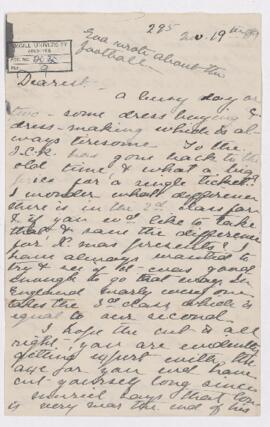 Eva wrote about the
football.
295 Nov. 19
McGILL UNIVERSITY
ARCHIVES
ACC. NO.
REF. 9
Dearest -
a busy day or
two - some dress buying &
dress-making which is al-
ways tiresome. So the
I.C.R. has gone back to the
old time, & what a big
price for a single ticket.
I wonder what difference
there is in the 2nd class fare
& if you wd like to take
that & save the difference
for X'mas presents? I
have always wanted to
try & see if it was good
enough to go that way. In
England nearly every one
takes the 3rd class which is
equal to our second.
I hope the cut is all
right - you are evidently
getting expert with the
axe for you wd have
cut yourself long since
says that
is very near the end of his